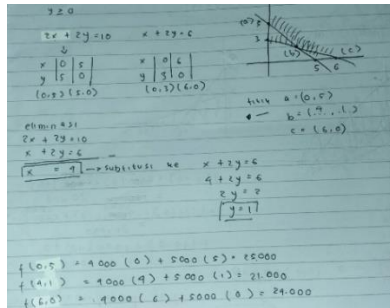 y ≥ 0
2x + 2y = 10
x | 0 | 5
y | 5 | 0
(0,5) (5,0)
x + 2y = 6
x | 0 | 6
y | 3 | 0
(0,3) (6,0)
(a) 5
3
(b)
(c)
5 6
titik a = (0,5)
b = (4,1)
c = (6,0)
eliminasi
2x + 2y = 10
x + 2y = 6
x = 4 → substitusi ke
x + 2y = 6
4 + 2y = 6
2y = 2
y = 1
f(0,5) = 4000 (0) + 5000 (5) = 25.000
f(4,1) = 4000 (4) + 5000 (1) = 21.000
f(6,0) = 4000 (6) + 5000 (0) = 24.000